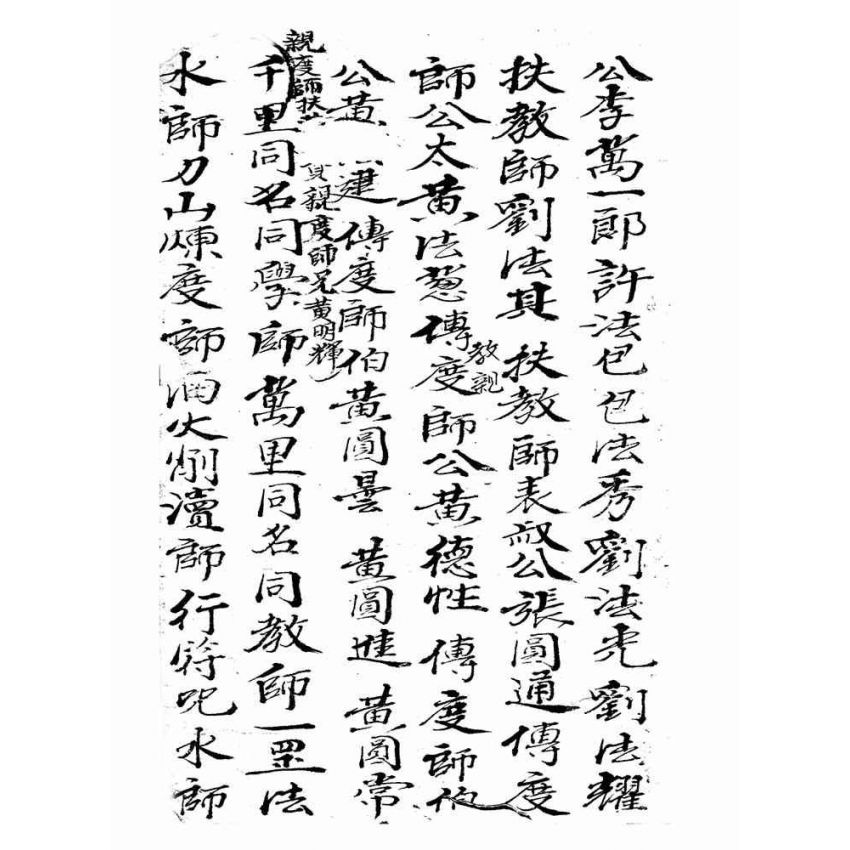 公李萬一郎許法巳包法秀劉法光劉法耀
扶教師劉法其 扶教師表叔公張圓通傳度
師公太黃法蔥傳度師公黃德性 傳度師伯
教親
公黃 建傳度師伯黃圓曇 黃圓進 黃圓常
親度師扶
親度師兄黃明輝
千里同名同學師萬里同名同教師一罡法
水師刀山煉度師酒火 瀆師行符咒水師